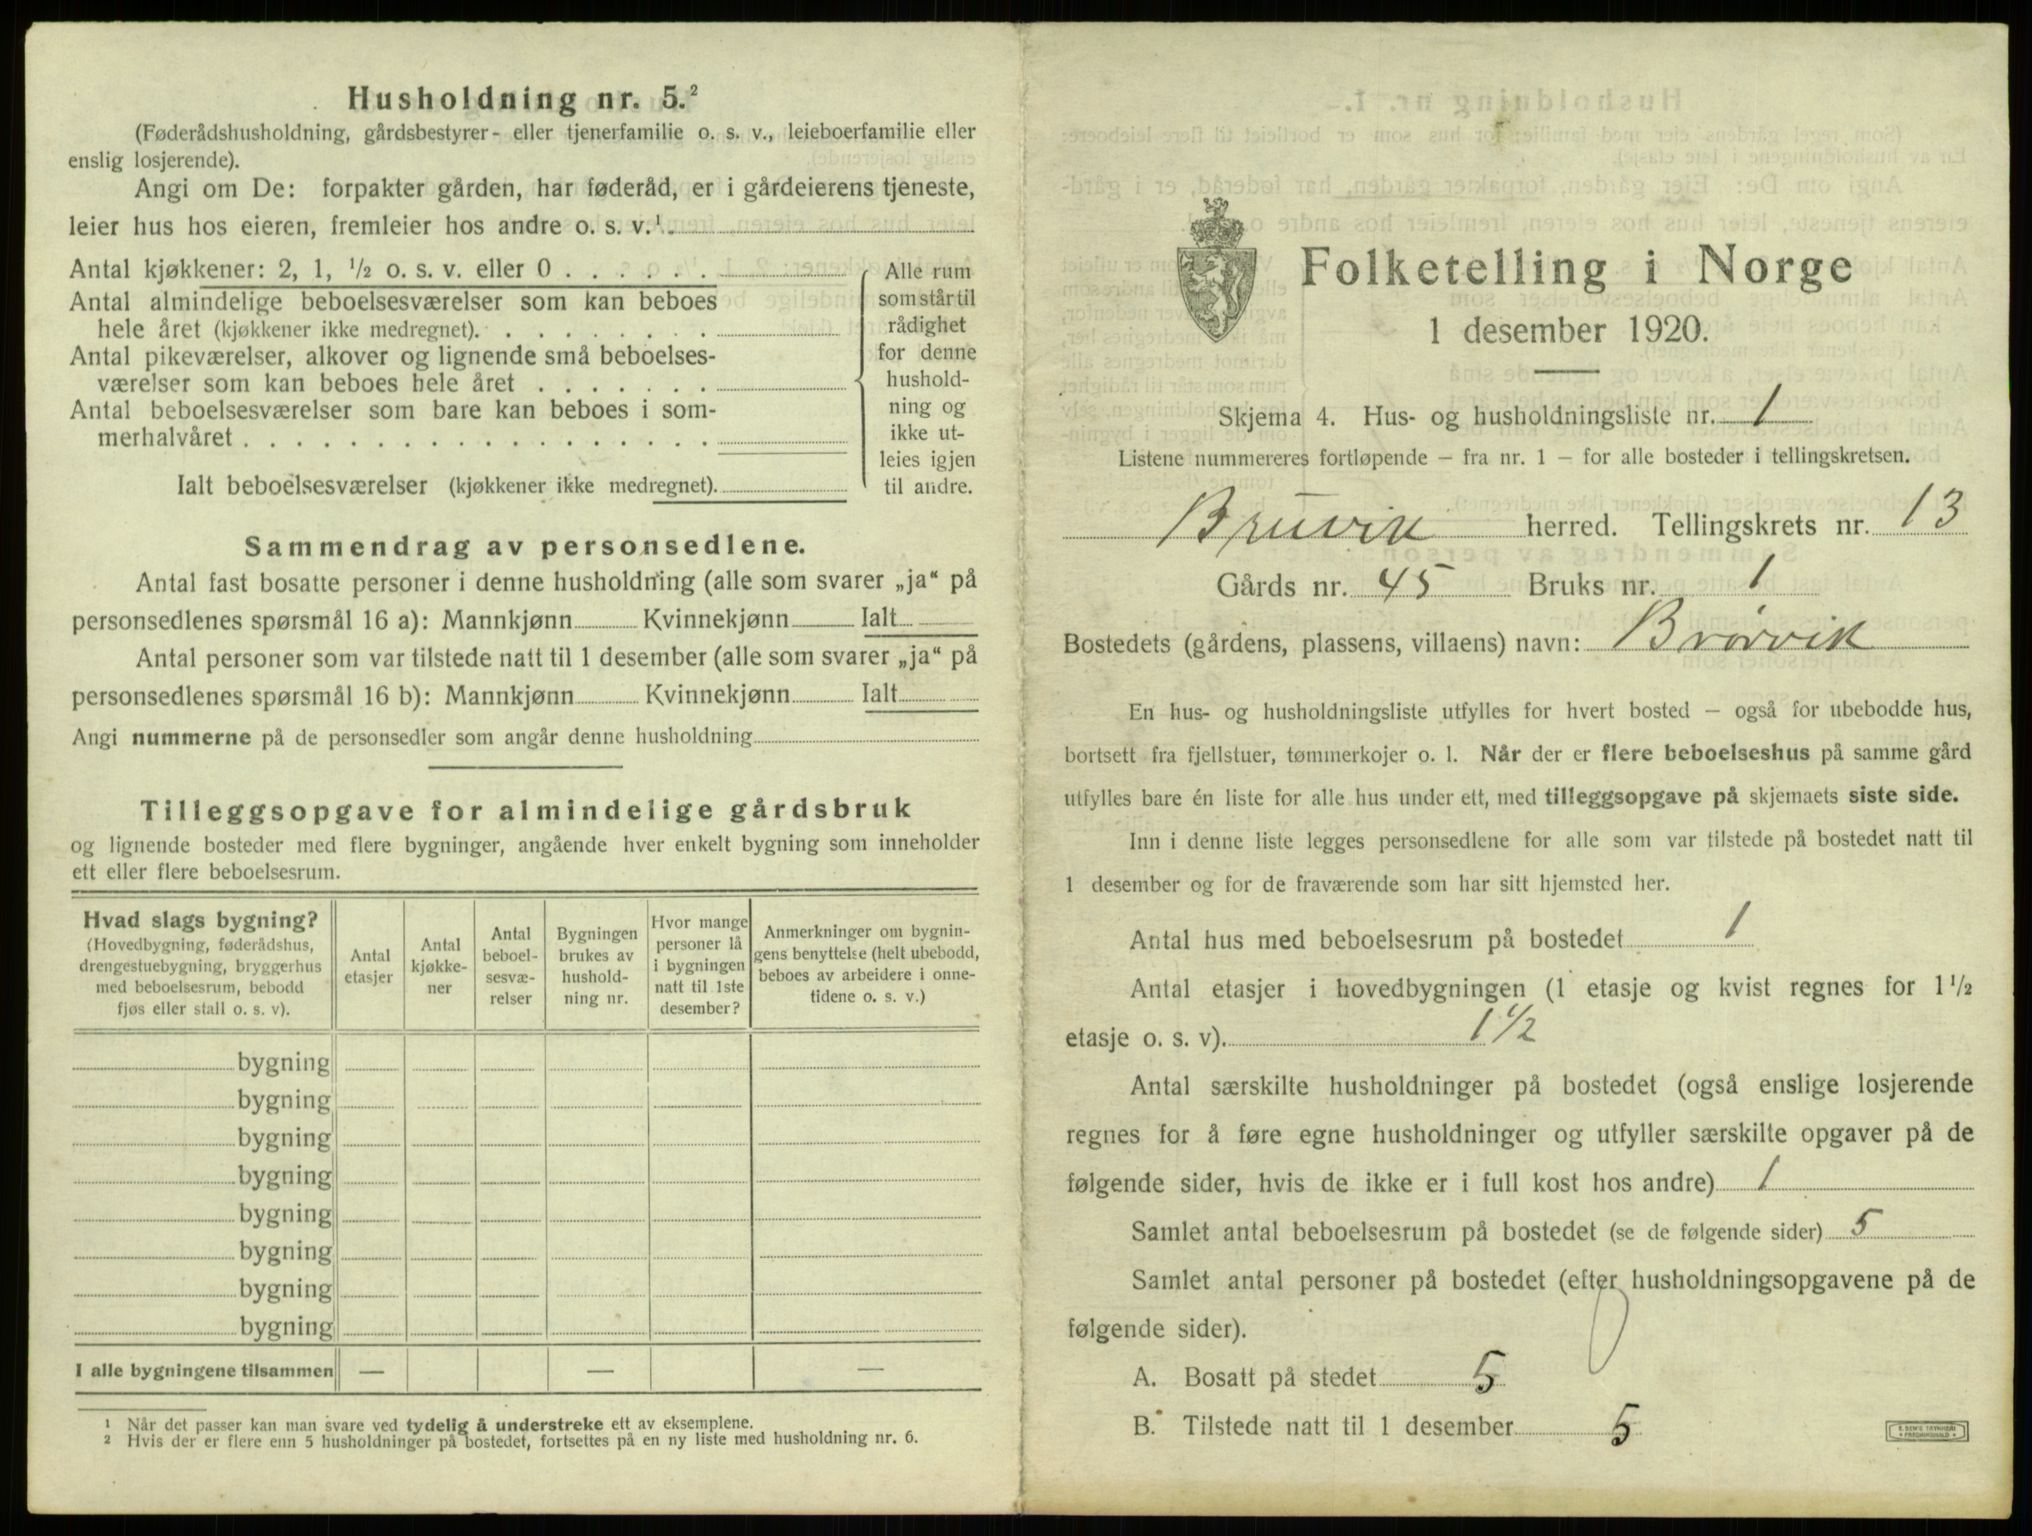 Husholdning nr. 5.²
(Føderådshusholdning, gårdsbestyrer- eller tjenerfamilie o. s. v., leieboerfamilie eller
enslig losjerende).
Angi om De: forpakter gården, har føderåd, er i gårdeierens tjeneste,
leier hus hos eieren, fremleier hos andre o. s. v.¹
Antal kjøkkener: 2, 1, ½ o. s. v. eller 0 . . . . . .
Antal almindelige beboelsesværelser som kan beboes
hele året (kjøkkener ikke medregnet). . . . . . . . .
Antal pikeværelser, alkover og lignende små beboelses-
værelser som kan beboes hele året . . . . . . .
Antal beboelsesværelser som bare kan beboes i som-
merhalvåret . . . . . . . . . . . . . . . . . .
Ialt beboelsesværelser (kjøkkener ikke medregnet).
Alle rum
som står til
rådighet
for denne
hushold-
ning og
ikke ut-
leies igjen
til andre.
Sammendrag av personsedlene.
Antal fast bosatte personer i denne husholdning (alle som svarer „ja“ på
personsedlenes spørsmål 16 a): Mannkjønn Kvinnekjønn Ialt
Antal personer som var tilstede natt til 1 desember (alle som svarer „ja“ på
personsedlenes spørsmål 16 b): Mannkjønn Kvinnekjønn Ialt
Angi nummerne på de personsedler som angår denne husholdning
Tilleggsopgave for almindelige gårdsbruk
og lignende bosteder med flere bygninger, angående hver enkelt bygning som inneholder
ett eller flere beboelsesrum.
Hvad slags bygning?
(Hovedbygning, føderådshus,
drengestuebygning, bryggerhus
med beboelsesrum, bebodd
fjøs eller stall o. s. v).
Antal
etasjer
Antal
kjøkke-
ner
Antal
beboel-
sesvæ-
relser
Bygningen
brukes av
hushold-
ning nr.
Hvor mange
personer lå
i bygningen
natt til 1ste
desember?
Anmerkninger om bygnin-
gens benyttelse (helt ubebodd,
beboes av arbeidere i onne-
tidene o. s. v.)
bygning
bygning
bygning
bygning
bygning
bygning
bygning
bygning
I alle bygningene tilsammen — — —
¹ Når det passer kan man svare ved tydelig å understreke ett av eksemplene.
² Hvis der er flere enn 5 husholdninger på bostedet, fortsettes på en ny liste med husholdning nr. 6.
Folketelling i Norge
1 desember 1920.
Skjema 4. Hus- og husholdningsliste nr. 1
Listene nummereres fortløpende – fra nr. 1 – for alle bosteder i tellingskretsen.
Bruvik herred. Tellingskrets nr. 13
Gårds nr. 45 Bruks nr. 1
Bostedets (gårdens, plassens, villaens) navn: Brørvik
En hus- og husholdningsliste utfylles for hvert bosted – også for ubebodde hus,
bortsett fra fjellstuer, tømmerkojer o. l. Når der er flere beboelseshus på samme gård
utfylles bare én liste for alle hus under ett, med tilleggsopgave på skjemaets siste side.
Inn i denne liste legges personsedlene for alle som var tilstede på bostedet natt til
1 desember og for de fraværende som har sitt hjemsted her.
Antal hus med beboelsesrum på bostedet 1
Antal etasjer i hovedbygningen (1 etasje og kvist regnes for 1½
etasje o. s. v). 1½
Antal særskilte husholdninger på bostedet (også enslige losjerende
regnes for å føre egne husholdninger og utfyller særskilte opgaver på de
følgende sider, hvis de ikke er i full kost hos andre) 1
Samlet antal beboelsesrum på bostedet (se de følgende sider) 5
Samlet antal personer på bostedet (efter husholdningsopgavene på de
følgende sider).
A. Bosatt på stedet 5
B. Tilstede natt til 1 desember 5